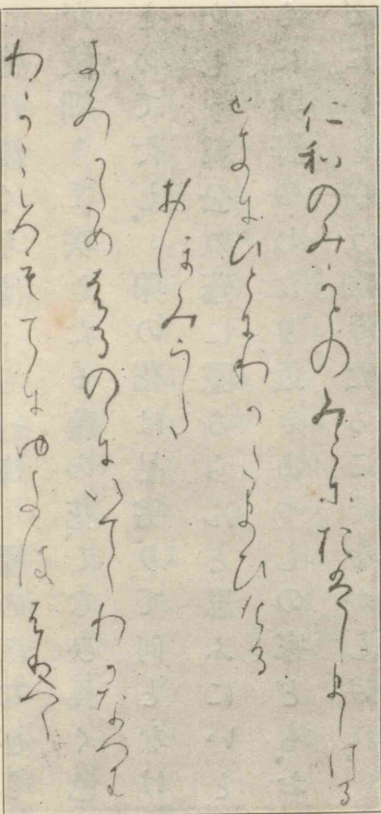 仁和のみかとのみこにおはしましける
ときにひとにわかなたまひける
おほみうた
きみかためはるのゝにいてゝわかなつむ
わかころもてにゆきはふりつゝ